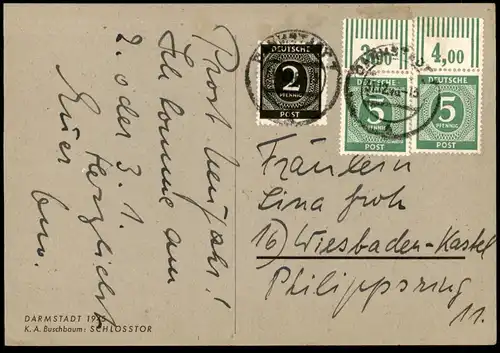 Prost Neujahr!
Ich komme am
2. oder 3. 1.
Herzlichst
Euer
DARMSTADT
K. A. Buschbaum: SCHLOSSTOR
DEUTSCHE
2
PFENNIG
POST
DEUTSCHE
5
PFENNIG
POST
4,00
DEUTSCHE
5
PFENNIG
POST
Fräulein
Lina Groh
16) Wiesbaden-Kastel
Philippsring
11.